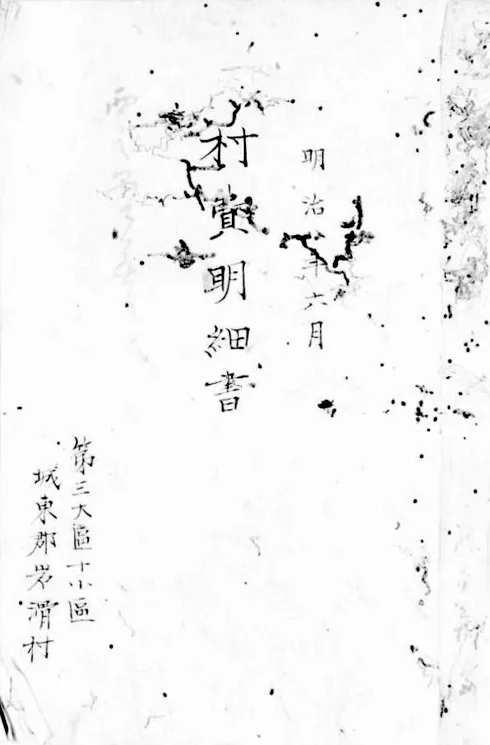 明治年六月
村費明細書
第三大區十小區
城東郡岩滑村